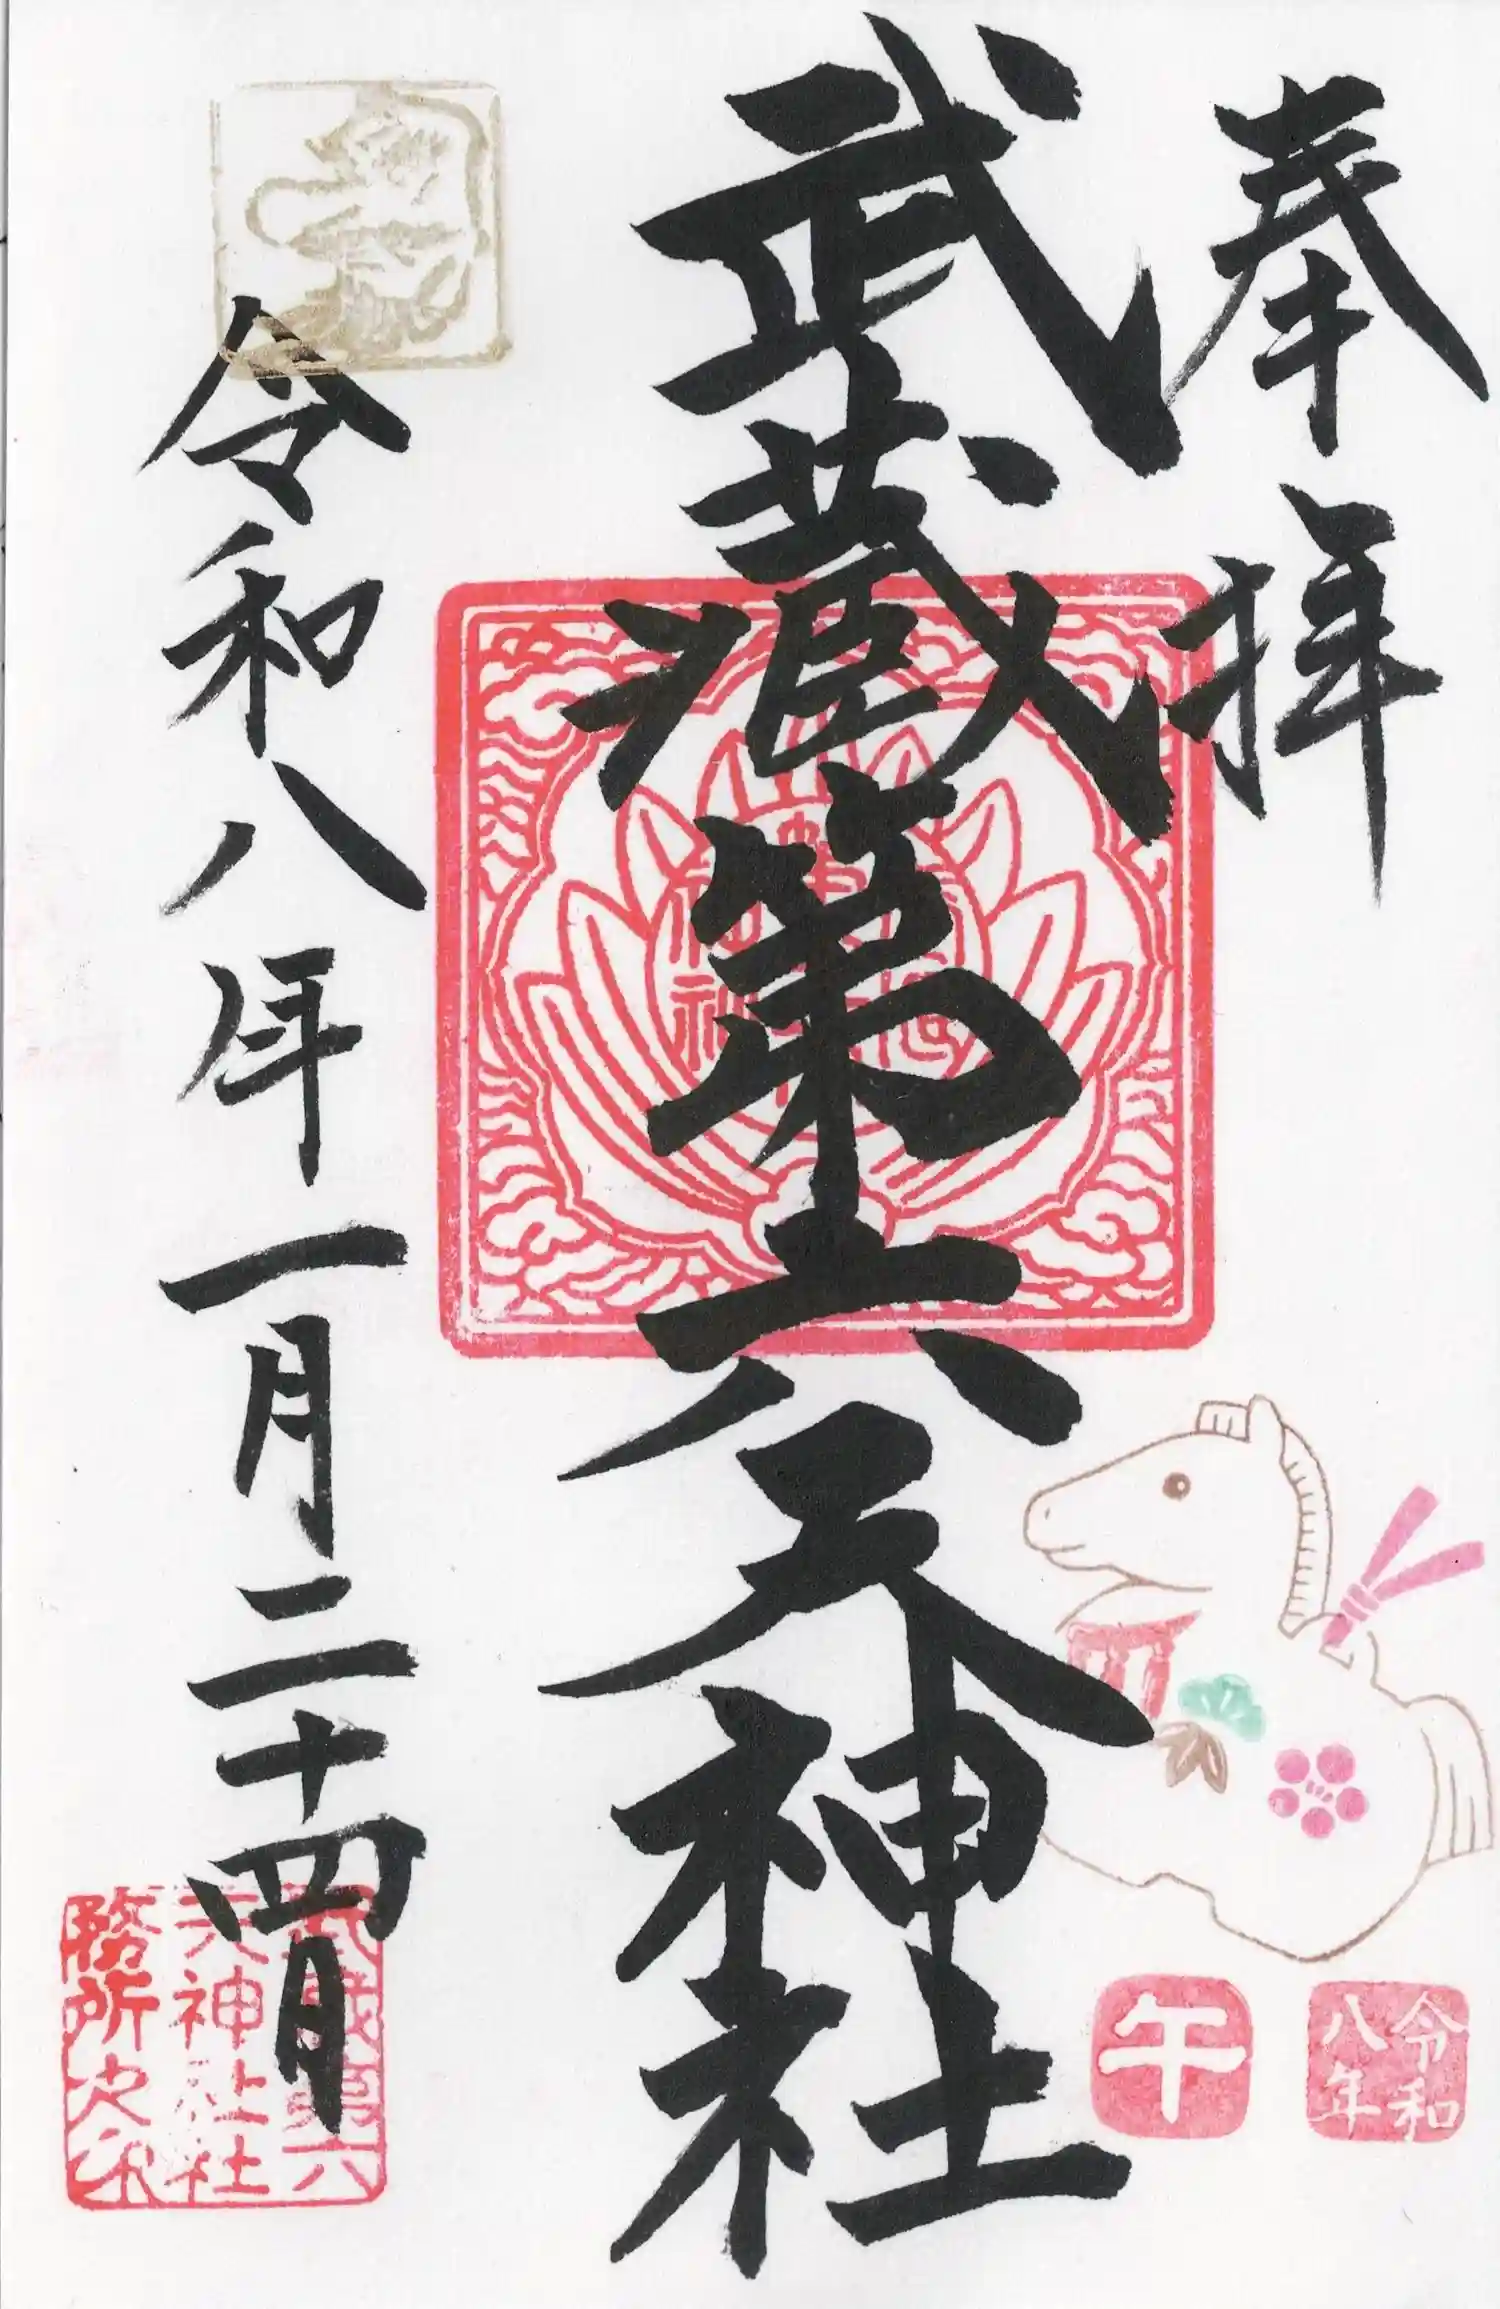 奉拝
武蔵第六天神社
令和八年一月二十四日
午
令和
八年
武蔵第六
天神社社
務所之印